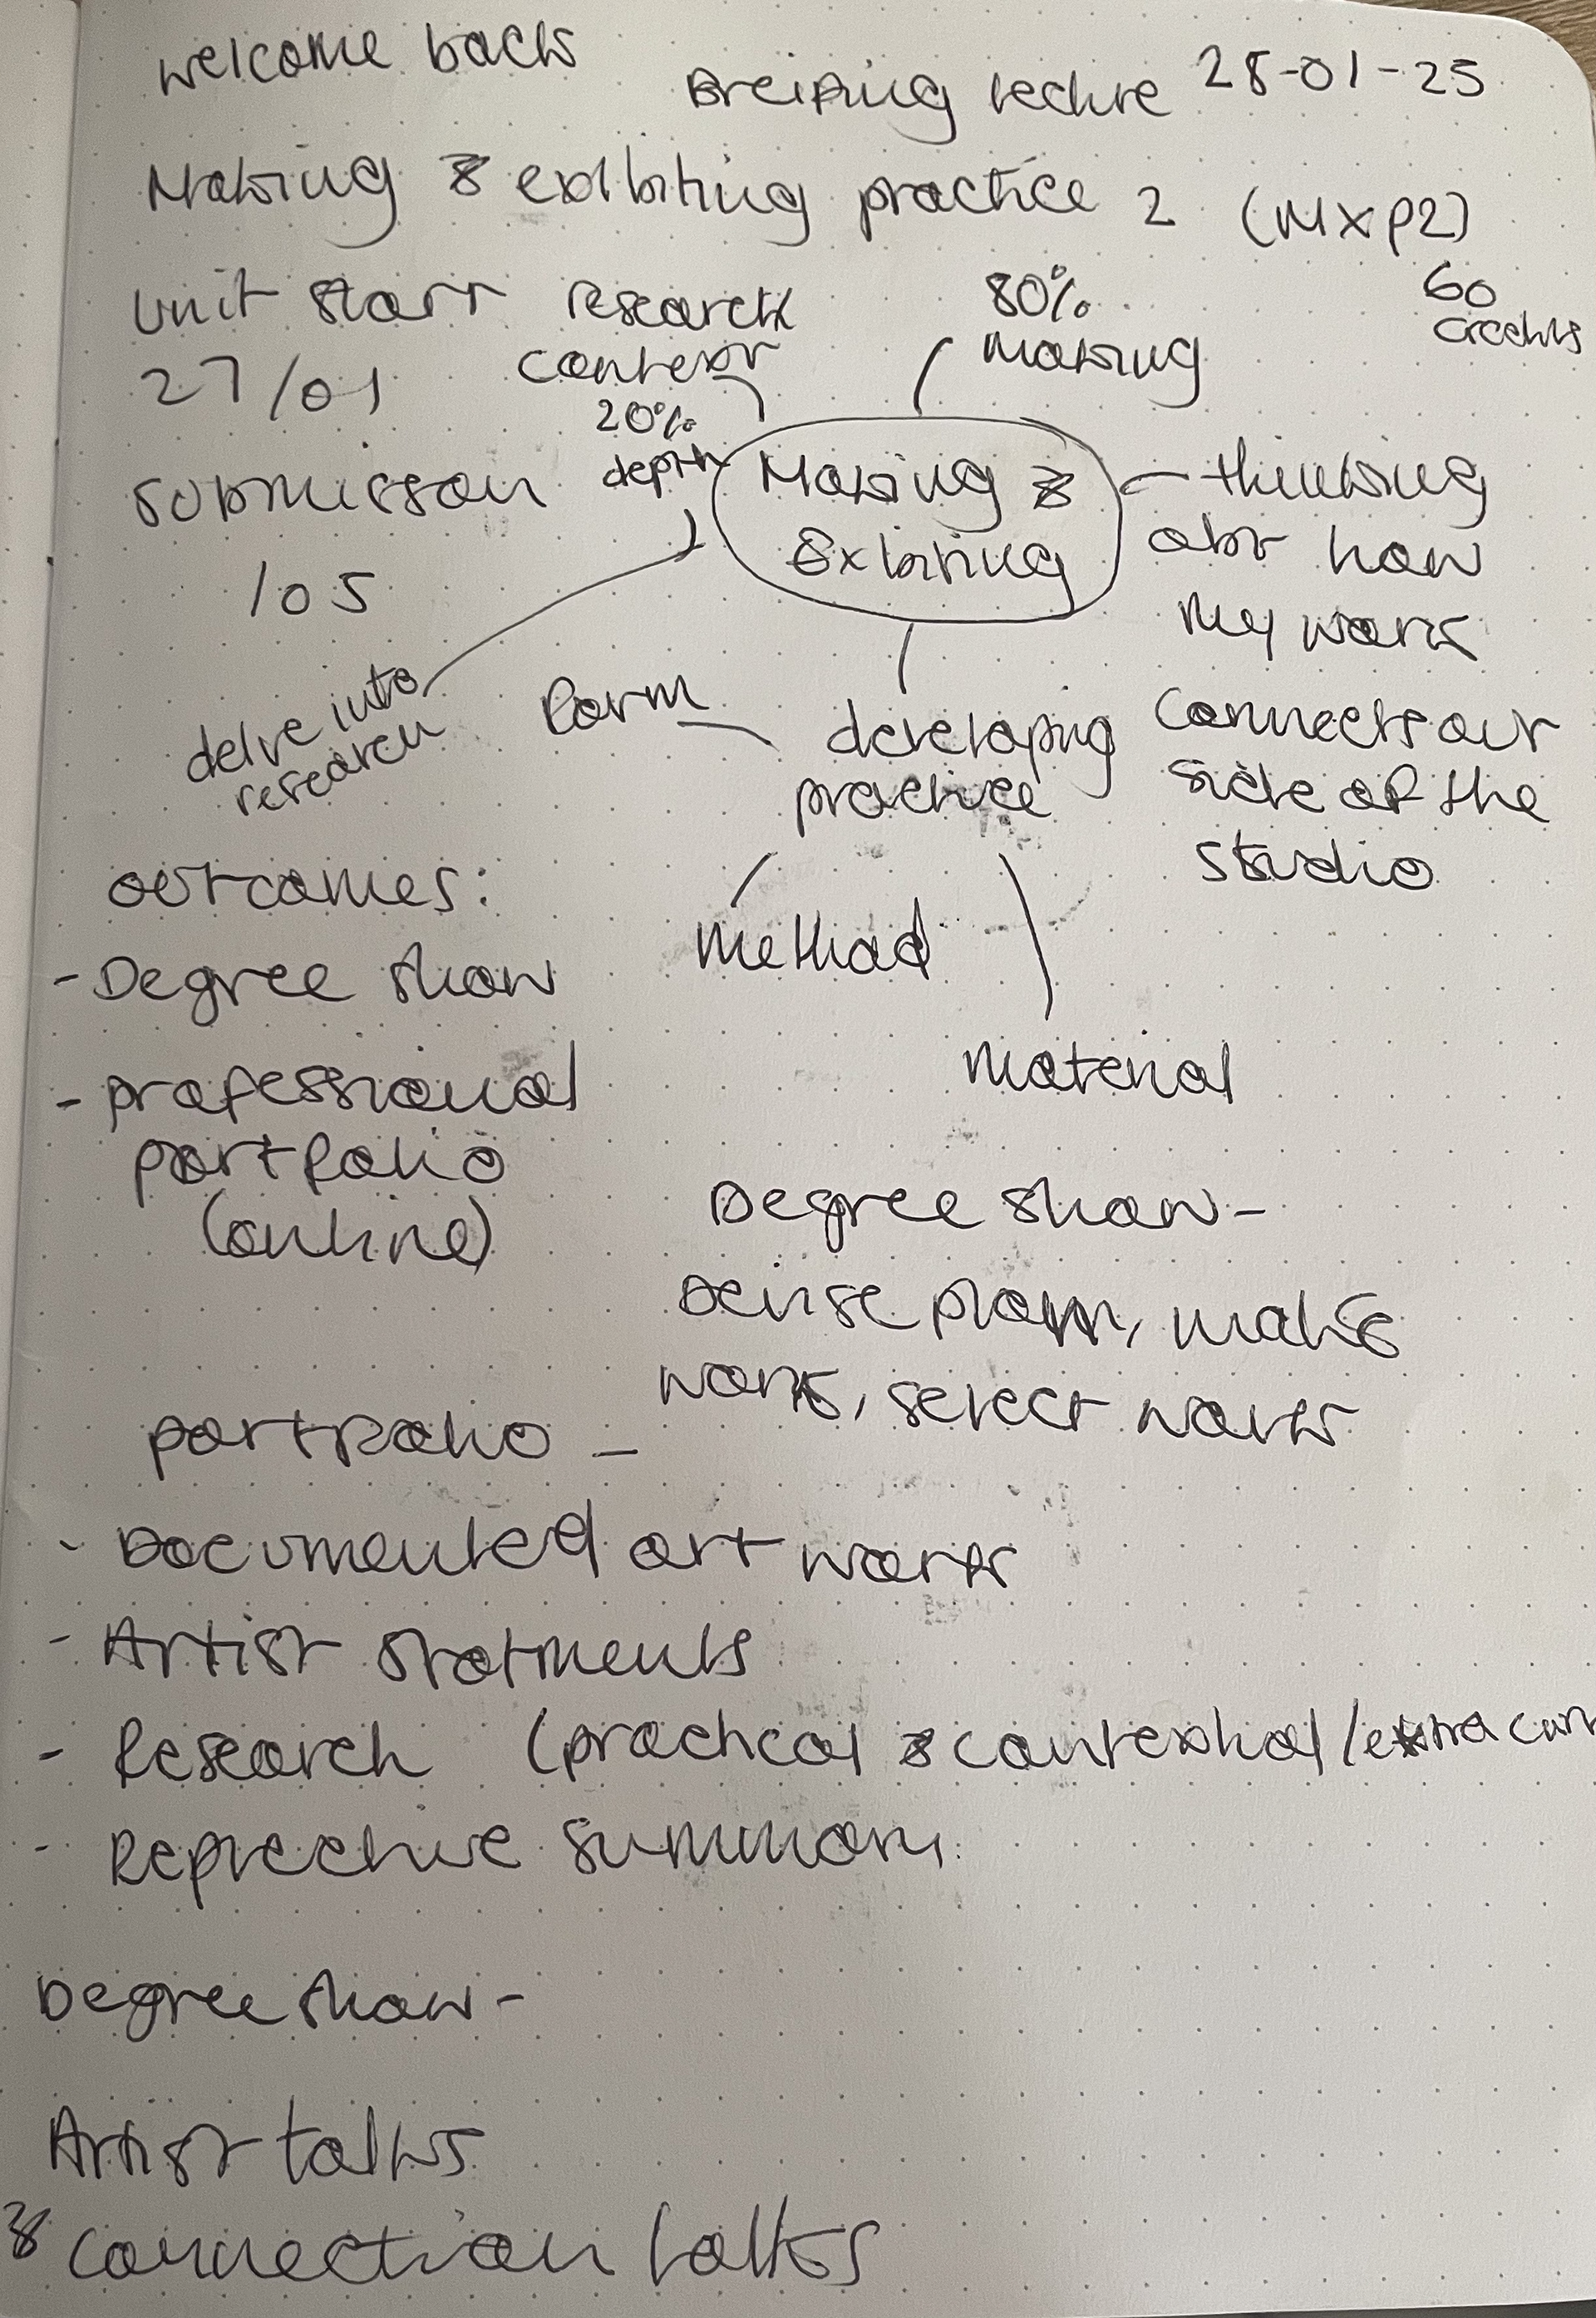 welcome back
Breifing lecture 28-01-25
Making & exibiting practice 2 (MXP2)
60
credits
unit start
27/01
submisson
/05
research
context
20%
depth
delve into
research
80%
making
Making &
Exibiting
thinking
abt how
my work
connects out
side of the
studio
form
developing
practice
method
material
outcomes:
- Degree show
- professional
portfolio
(online)
Degree show -
Devise plan, make
work, select work
portfolio -
- Documented art work
- Artist statments
- Research (practical & contextual / extra curr
- Reflective summary
Degree show -
Artist talks
& connection talks